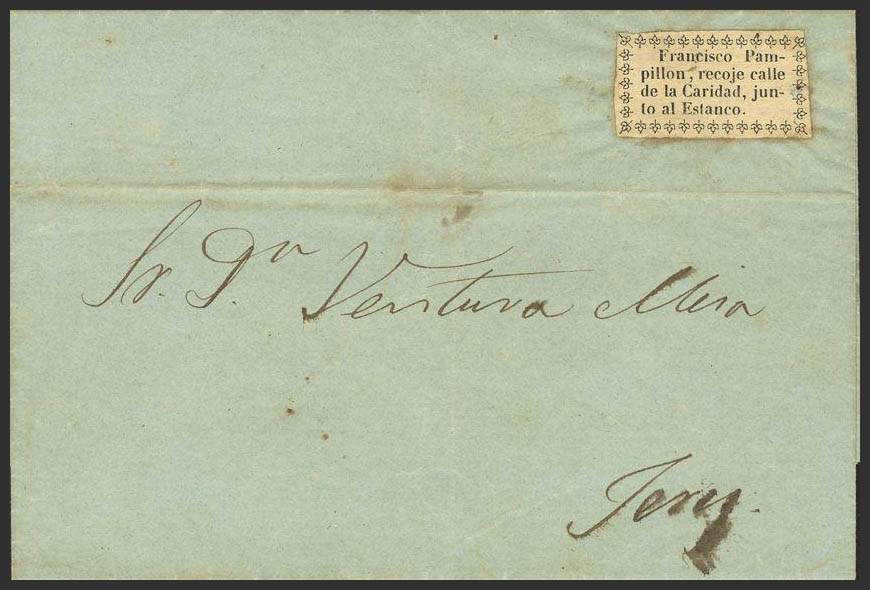 Francisco Pam-
pillon, recoje calle
de la Caridad, jun-
to al Estanco.
Sr. Dn Ventura Misa
Jerez.